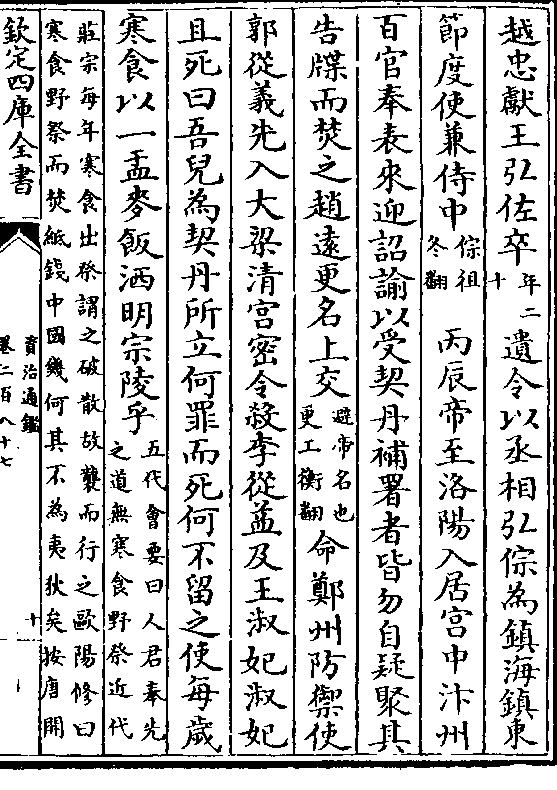 越忠獻王弘佐卒年二十遺令以丞相弘倧為鎮海鎮東
節度使兼侍中倧祖冬翻 丙辰帝至洛陽入居宫中汴州
百官奉表來迎詔諭以受契丹補署者皆勿自疑聚其
告牒而焚之趙遠更名上交避帝名也更工衡翻命鄭州防禦使
郭從義先入大梁清宫密令殺李從益及王淑妃淑妃
且死曰吾兒為契丹所立何罪而死何不留之使每歳
寒食以一盂麥飯洒明宗陵乎五代會要曰人君奉先之道無寒食野祭近代
莊宗每年寒食出祭謂之破散故襲而行之歐陽修曰
寒食野祭而焚紙錢中國幾何其不為夷狄矣按唐開
欽定四庫全書
資治通鑑
卷二百八十七
十